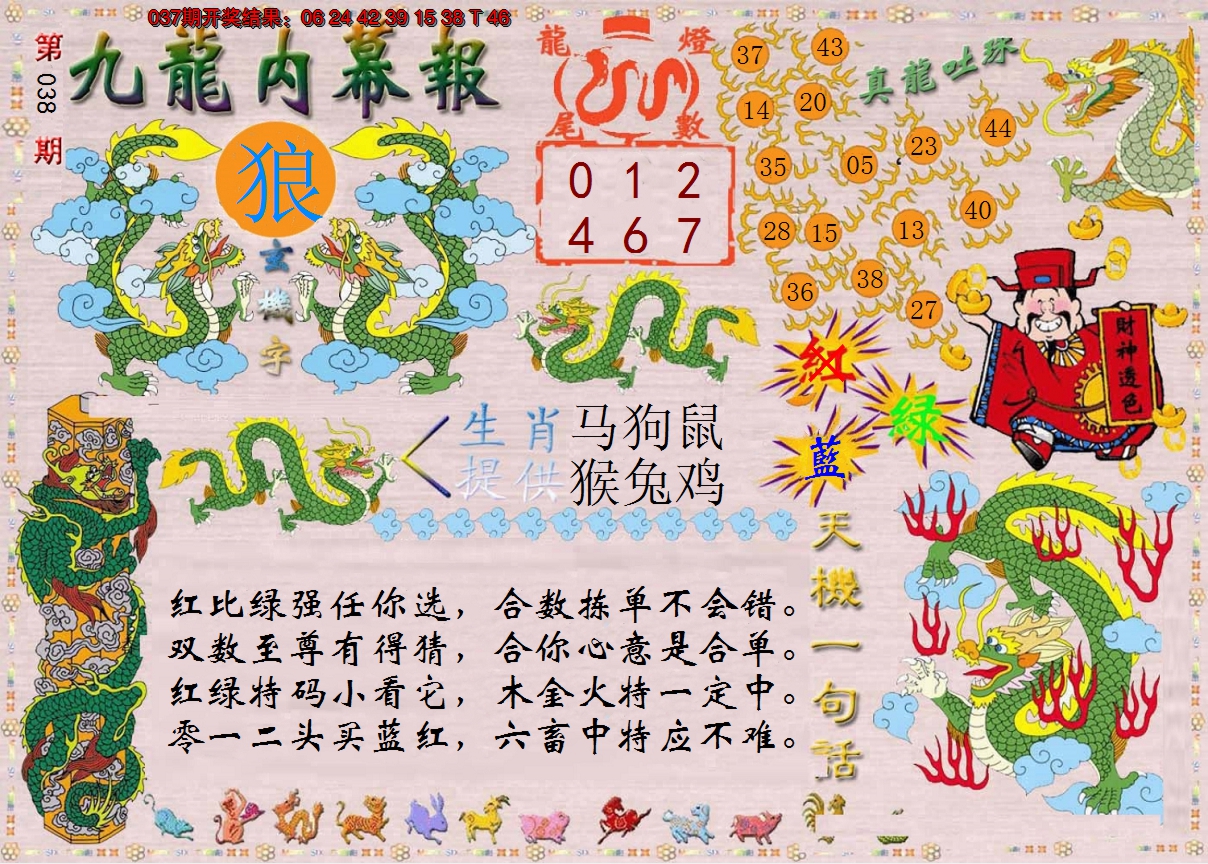 037期开奖结果：06 24 42 39 15 38 T 46
第
038
期
九龍内幕報
狼
玄
機
字
龍
燈
尾
數
0 1 2
4 6 7
真龍吐珠
37
43
14
20
35
05
23
44
28
15
13
40
36
38
27
財神透色
紅
綠
藍
生肖 马狗鼠
提供 猴兔鸡
红比绿强任你选，合数拣单不会错。
双数至尊有得猜，合你心意是合单。
红绿特码小看它，木金火特一定中。
零一二头买蓝红，六畜中特应不难。
天機一句話